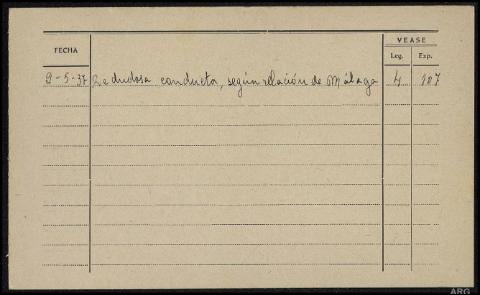 VEASE
FECHA Leg. Exp.
9-5-37 De dudosa conducta, según relación de Málaga 4 187
ARG